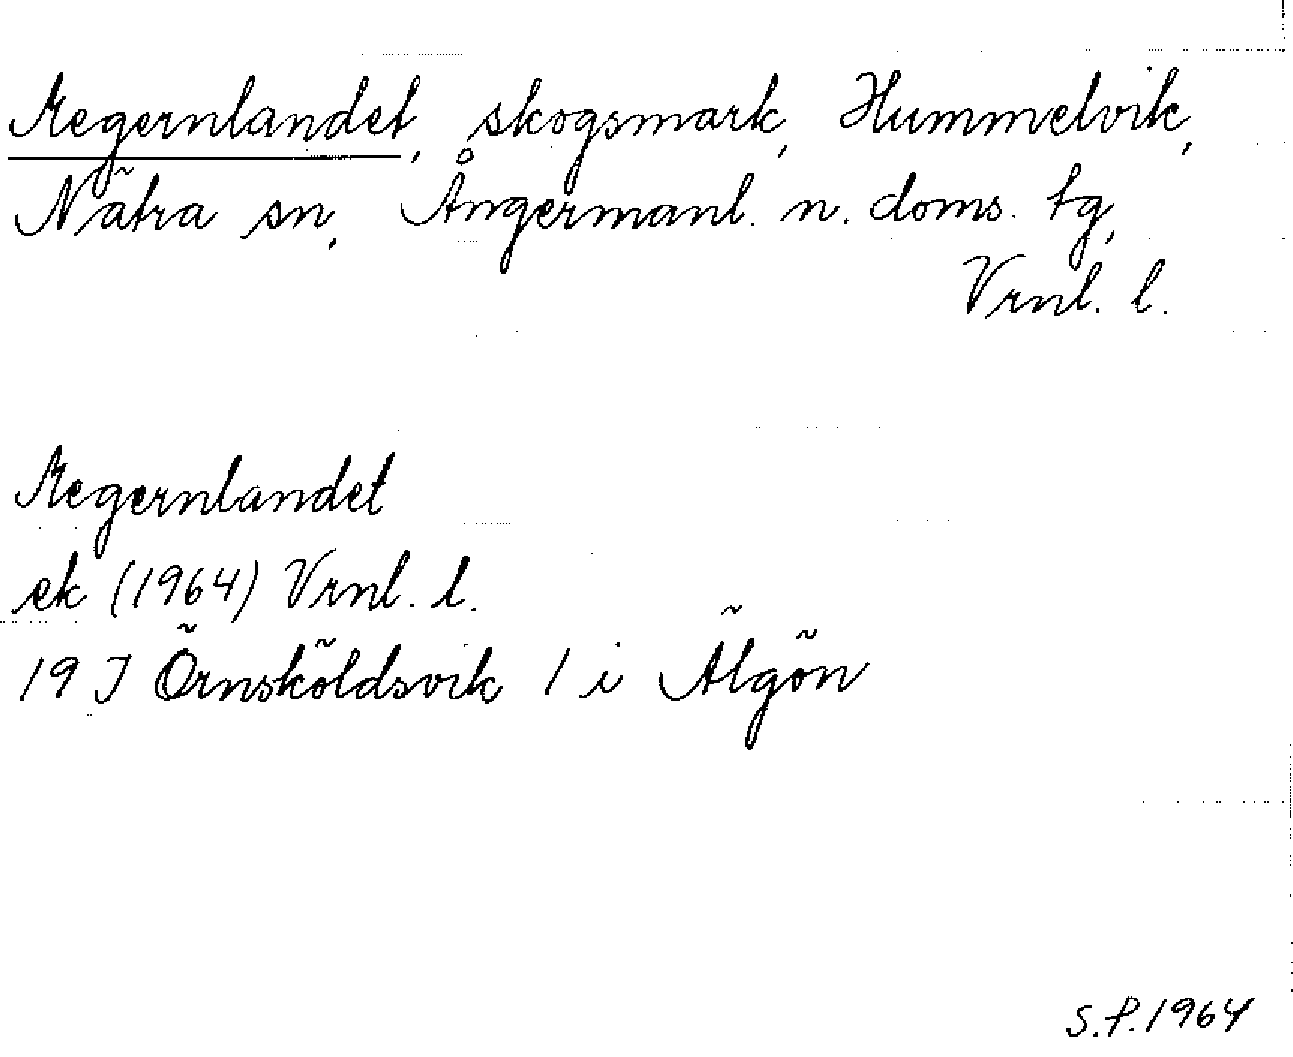 Megernlandet, skogsmark, Hummelvik,
Nätra sn, Ångermanl. n. doms. tg,
Vrnl. l.
Megernlandet
ek (1964) Vrnl. l.
19 J Örnsköldsvik 1 i Älgön
S.P. 1964